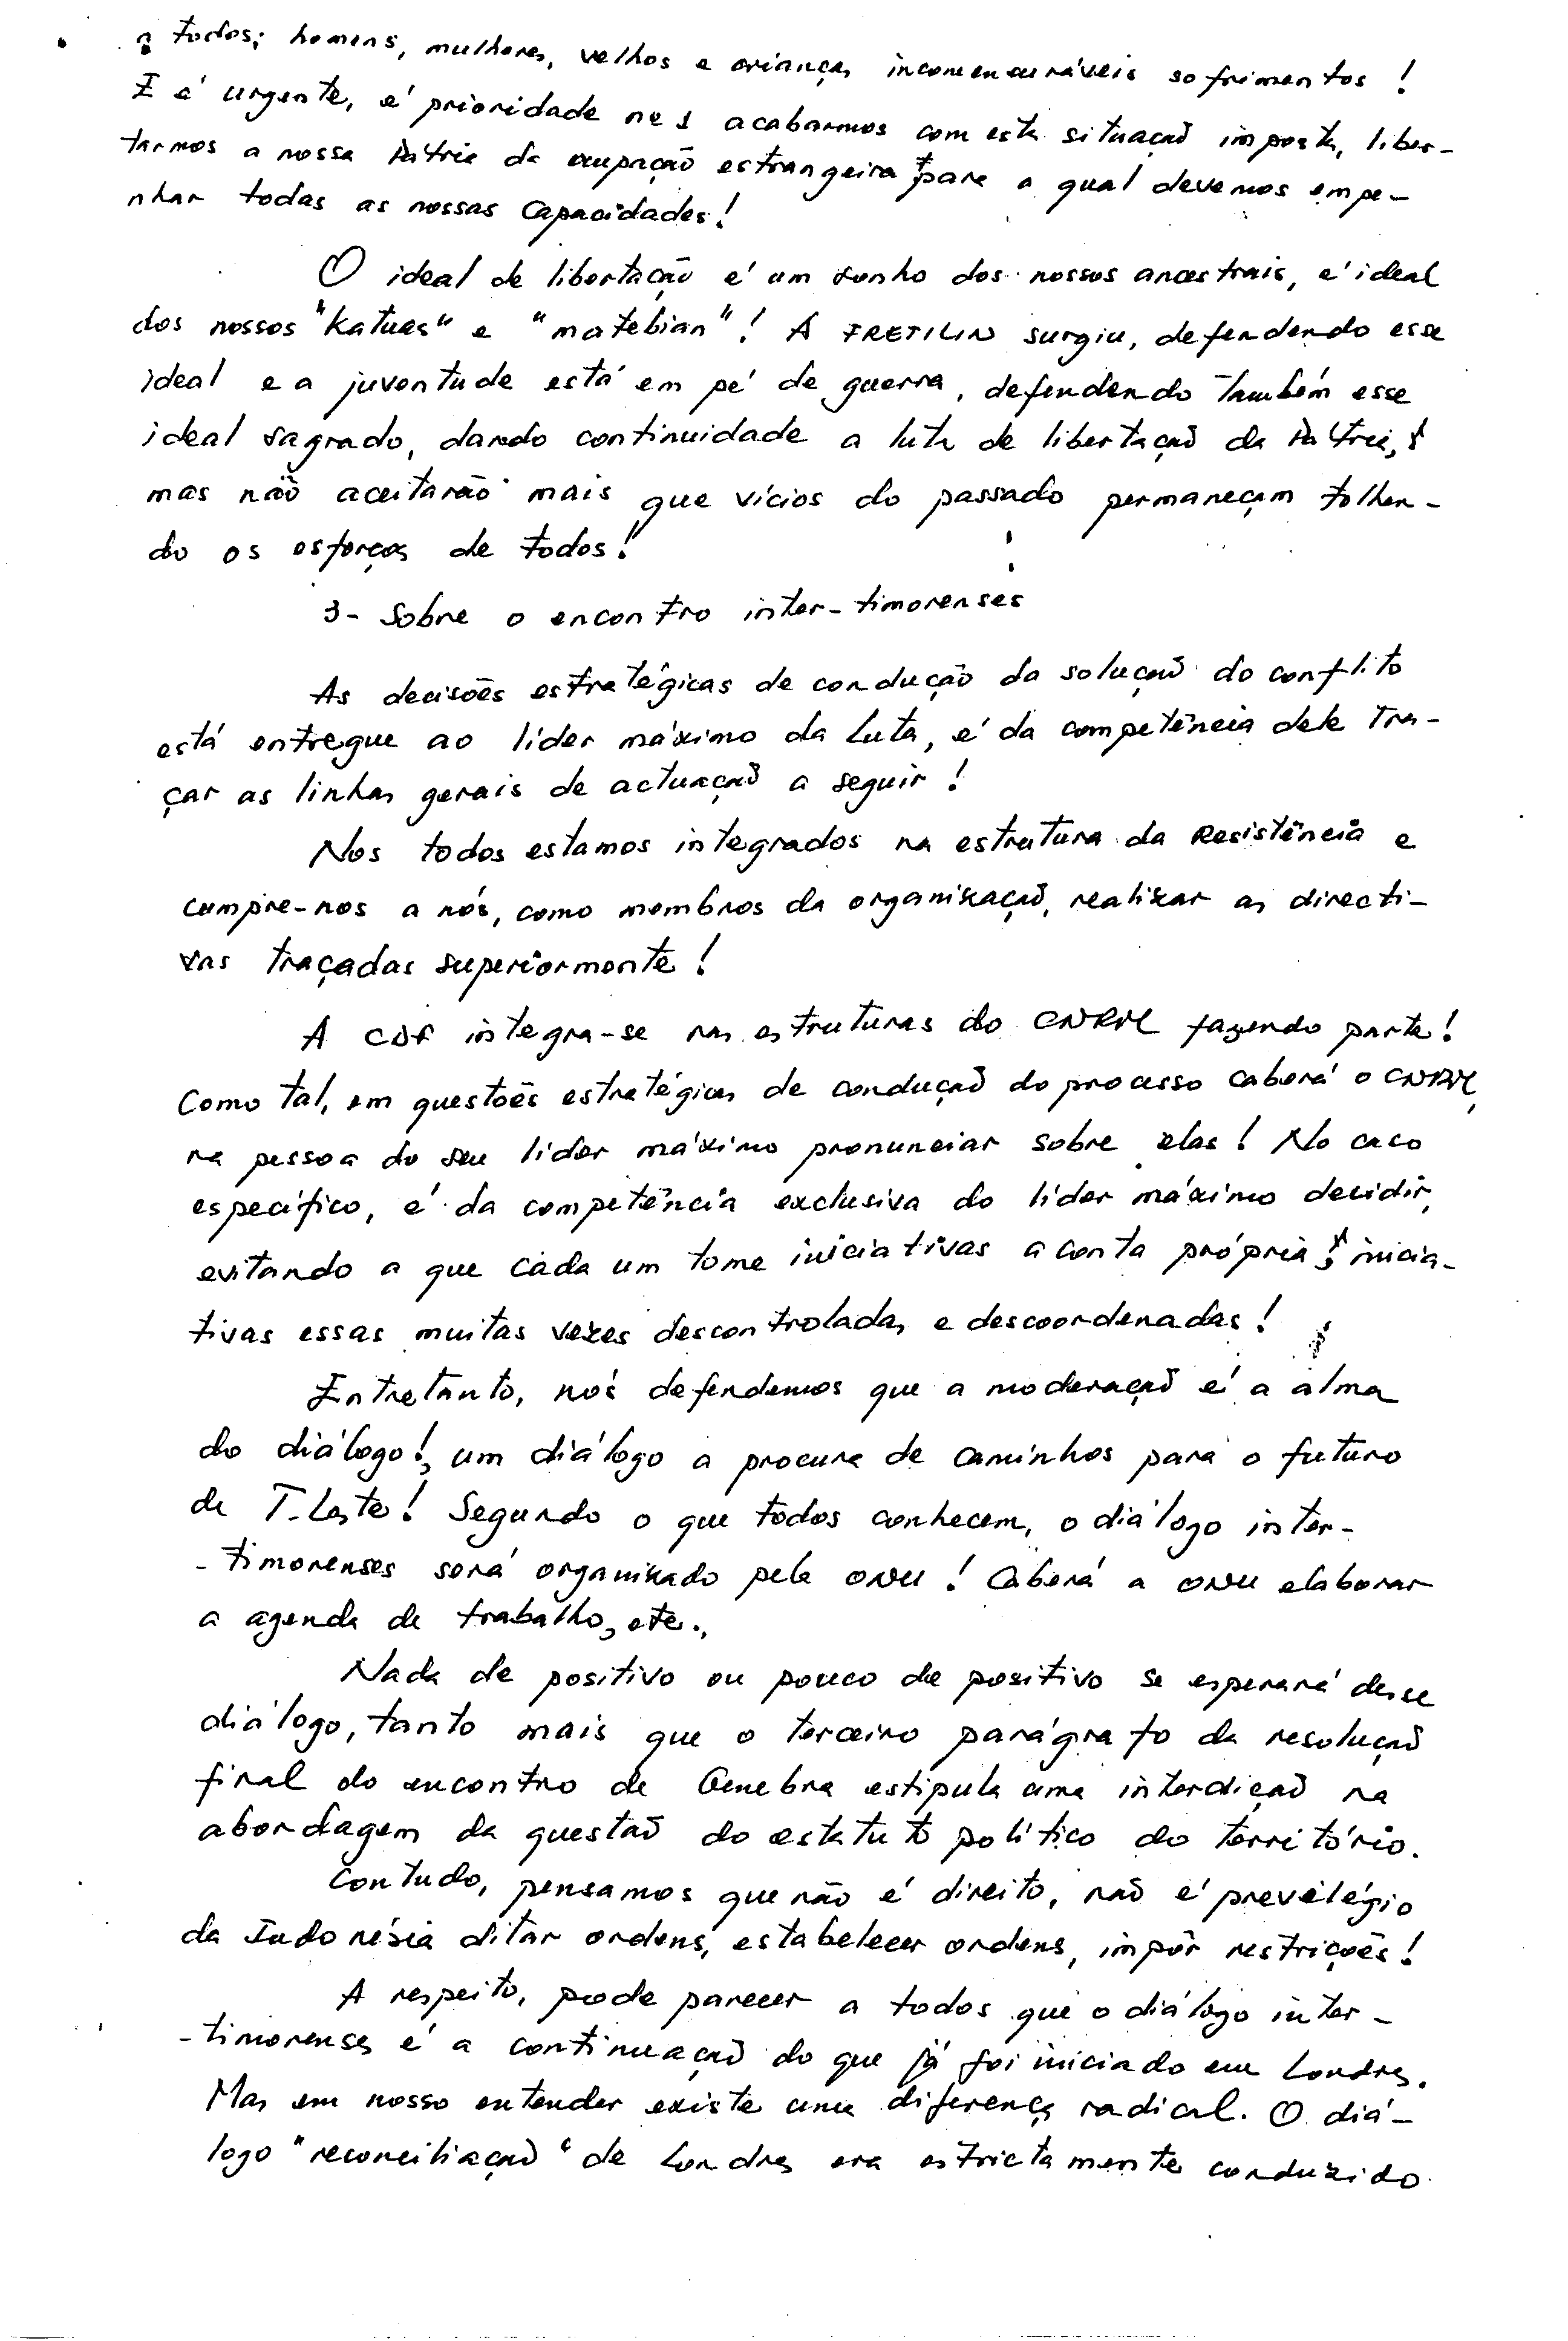 a todos; homens, mulheres, velhos e crianças incomensuráveis sofrimentos!
E é urgente, é prioridade nos acabarmos com esta situação imposta, liber-
tarmos a nossa Pátria da ocupação estrangeira para a qual devemos empe-
nhar todas as nossas capacidades!
O ideal de libertação é um sonho dos nossos ancestrais, é ideal
dos nossos "Katuas" e "matebian"! A FRETILIN surgiu, defendendo esse
ideal e a juventude está em pé de guerra, defendendo também esse
ideal sagrado, dando continuidade a luta de libertação da Pátria,
mas não aceitarão mais que vícios do passado permaneçam tolhen-
do os esforços de todos!
3- Sobre o encontro inter-timorenses
As decisões estratégicas de condução da solução do conflito
está entregue ao líder máximo da Luta, é da competência dele tra-
çar as linhas gerais de actuação a seguir!
Nos todos estamos integrados na estrutura da Resistência e
cumpre-nos a nós, como membros da organização, realizar as directi-
vas traçadas superiormente!
A CDF integra-se nas estruturas do CNRM fazendo parte!
Como tal, em questões estratégicas de condução do processo caberá o CNRM,
na pessoa do seu líder máximo pronunciar sobre elas! No caso
específico, é da competência exclusiva do líder máximo decidir,
evitando a que cada um tome iniciativas a conta própria; inicia-
tivas essas muitas vezes descontroladas e descoordenadas!
Entretanto, nós defendemos que a moderação é a alma
do diálogo!, um diálogo a procura de caminhos para o futuro
de T. Leste! Segundo o que todos conhecem, o diálogo inter-
-timorenses será organizado pela ONU! Caberá a ONU elaborar
a agenda de trabalho, etc.,
Nada de positivo ou pouco de positivo se esperará desse
diálogo, tanto mais que o terceiro parágrafo da resolução
final do encontro de Genebra estipula uma interdição na
abordagem da questão do estatuto político do território.
Contudo, pensamos que não é direito, não é previlégio
da Indonésia ditar ordens, estabelecer ordens, impôr restrições!
A respeito, pode parecer a todos que o diálogo inter-
-timorenses é a continuação do que já foi iniciado em Londres.
Mas em nosso entender existe uma diferença radical. O diá-
logo "reconciliação" de Londres era estrictamente conduzido